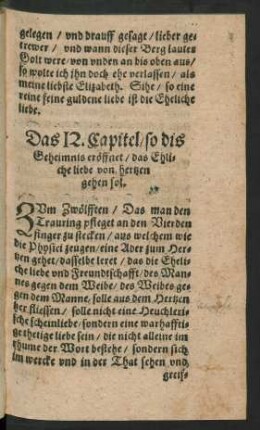 gelegen / vnd drauff gesagt / lieber ge-
trewer / vnd wann dieser Berg lautes
Golt were / von vnden an bis oben aus /
so wolte ich ihn doch ehe verlassen / als
meine liebste Elizabeth. Sihe / so eine
reine feine guldene liebe ist die Eheliche
liebe.
Das 12. Capitel / so dis
Geheimnis eröffnet / das Ehli-
che liebe von hertzen
gehen sol.
ZVm Zwölfften / Das man den
Trauring pfleget an den Vierden
finger zu stecken / aus welchem wie
die Physici zeugen / eine Ader zum Her-
tzen gehet / dasselbe leret / das die Eheli-
che liebe vnd Freundtschafft / des Man-
nes gegen dem Weibe / des Weibes ge-
gen dem Manne / solle aus dem Hertzen
her fliessen / solle nicht eine Heuchleri-
sche scheinliebe / sondern eine warhafftri-
ge thetige liebe sein / die nicht alleine im
rhume der Wort bestehe / sondern sich
im wercke vnd in der That sehen vnd
greif-